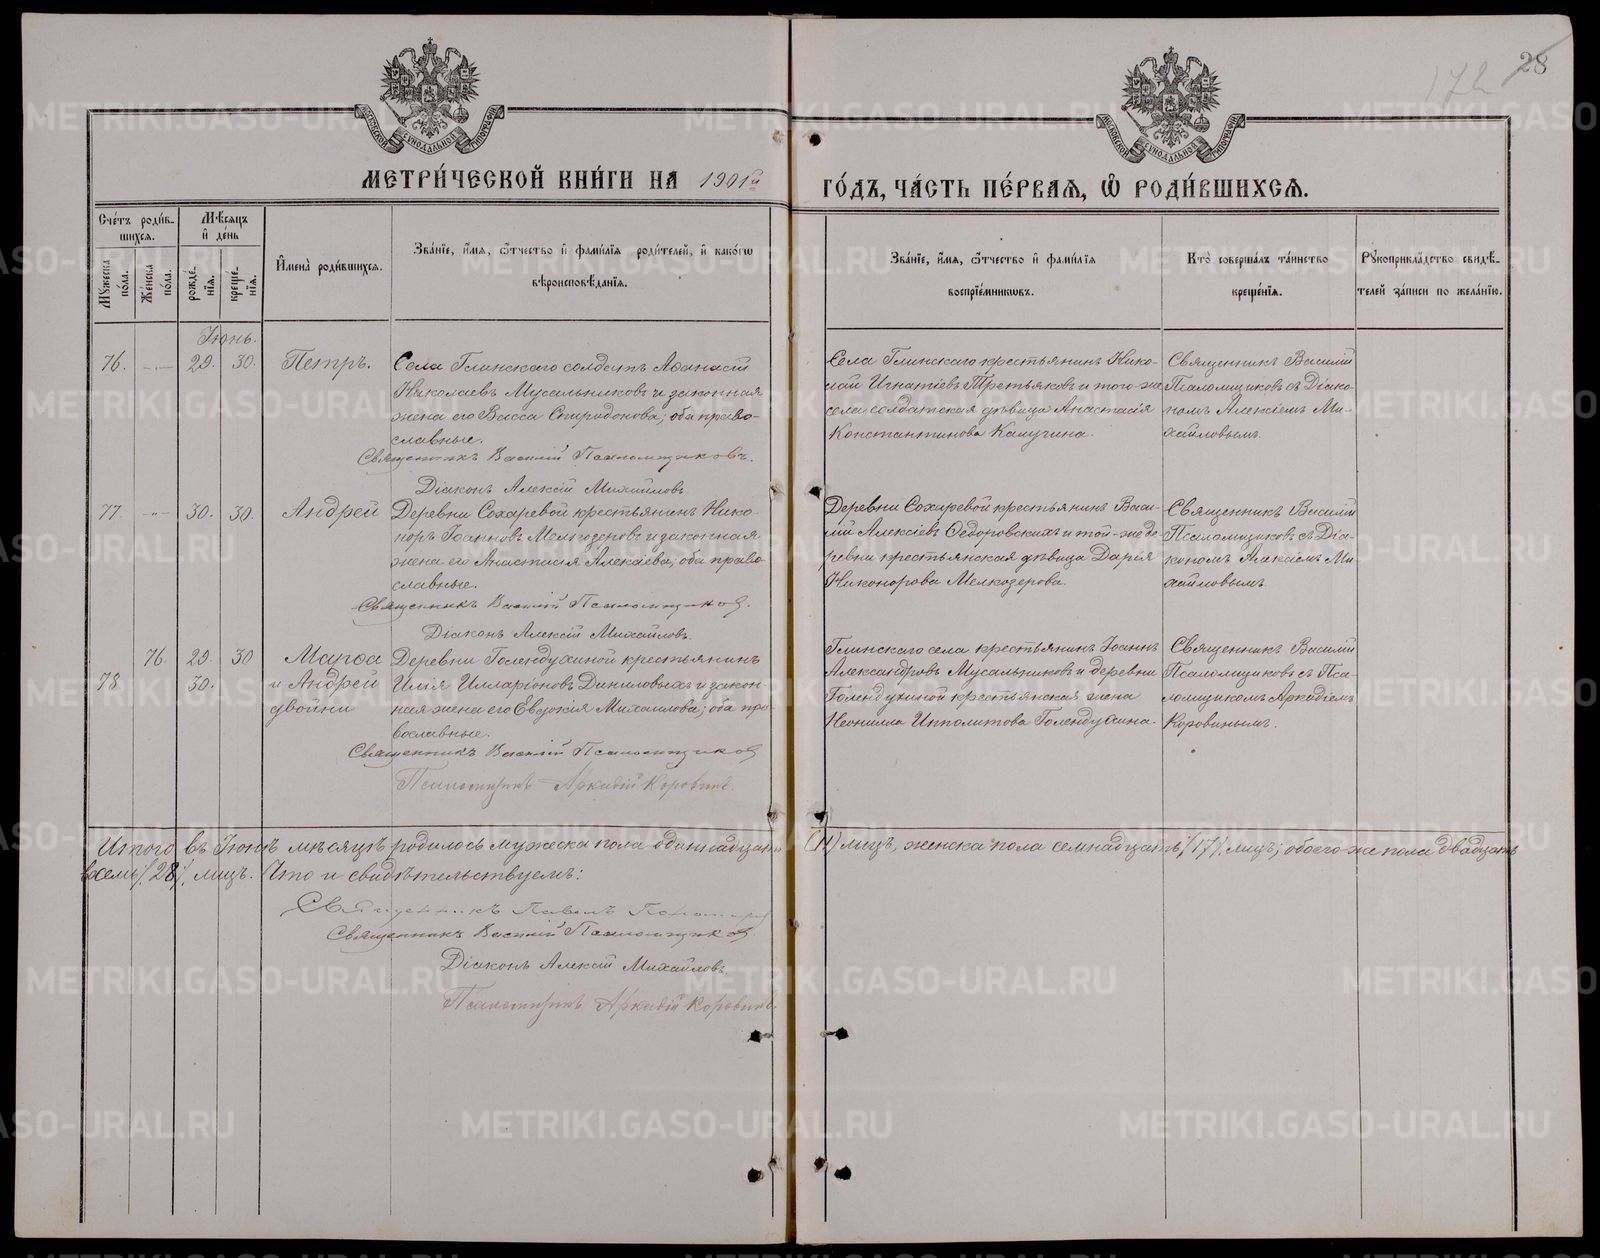 28
172
МОСКОВСКОЙ СУНОДАЛЬНОЙ ТИПОГРАФИИ
МОСКОВСКОЙ СУНОДАЛЬНОЙ ТИПОГРАФИИ
МЕТРИ́ЧЕСКОЙ КНИ́ГИ НА 1901й ГО́ДЪ, ЧА́СТЬ ПЕ́РВАѦ, Ѡ РОДИ́ВШИХСѦ.
Сче́тъ роди́в-
шихсѧ.
Мꙋ́жеска по́ла.
Же́нска по́ла.
Мѣ́сѧцъ
и де́нь
рожде́нїѧ.
креще́нїѧ.
И҆мена̀ роди́вшихсѧ.
Зва́нїе, и҆́мѧ, ѻ҆́тчество и҆ фами́лїѧ роди́телей, и҆ како́гѡ
вѣроисповѣ́данїѧ.
Зва́нїе, и҆́мѧ, ѻ҆́тчество и҆ фами́лїѧ
воспрїе́мниковъ.
Кто̀ соверша́лъ та́инство
креще́нїѧ.
Рꙋкоприкла́дство свидѣ́-
телей за́писи по жела́нїю.
Іюнь.
76. -"- 29. 30. Петръ.
Села Глинскаго солдатъ Аѳанасій
Николаевъ Мусальниковъ и законная
жена его Васса Спиридонова; оба право-
славные.
Священникъ Василій Псаломщиковъ.
Діаконъ Алексій Михайловъ
Села Глинскаго крестьянинъ Нико-
лай Игнатіевъ Третьяковъ и того-же
села солдатская дѣвица Анастасія
Константинова Калугина.
Священникъ Василій
Псаломщиковъ съ Діако-
номъ Алексіемъ Ми-
хайловымъ.
77. -"- 30. 30. Андрей
Деревни Сохаревой крестьянинъ Нико-
норъ Іоанновъ Мелкозеровъ и законная
жена его Анастасія Алексіева; оба право-
славные.
Священникъ Василій Псаломщиковъ.
Діаконъ Алексій Михайловъ.
Деревни Сохаревой крестьянинъ Васи-
лій Алексіевъ Ѳедоровскихъ и той-же де-
ревни крестьянская дѣвица Дарія
Никонорова Мелкозерова.
Священникъ Василій
Псаломщиковъ съ Діа-
кономъ Алексіемъ Ми-
хайловымъ.
76. 29. 30 Марѳа
78. 30. и Андрей
двойни
Деревни Голендухиной крестьянинъ
Илія Илларіоновъ Даниловыхъ и закон-
ная жена его Евдокія Михаилова; оба пра-
вославные.
Священникъ Василій Псаломщиковъ
Псаломщикъ Аркадій Коровинъ.
Глинскаго села крестьянинъ Іоаннъ
Александровъ Мусальниковъ и деревни
Голендухиной крестьянская жена
Неонилла Ипполитова Голендухина.
Священникъ Василій
Псаломщиковъ съ Пса-
ломщикомъ Аркадіемъ
Коровинымъ.
Итого въ Іюнѣ мѣсяцѣ родилось мужеска пола одиннадцать (11) лицъ, женска пола семнадцать /17/ лицъ; обоего-же пола двадцать
восемь /28/ лицъ. Что и свидѣтельствуемъ:
Священникъ Павелъ
Священникъ Василій Псаломщиковъ.
Діаконъ Алексій Михайловъ.
Псаломщикъ Аркадій Коровинъ.
METRIKI.GASO-URAL.RU